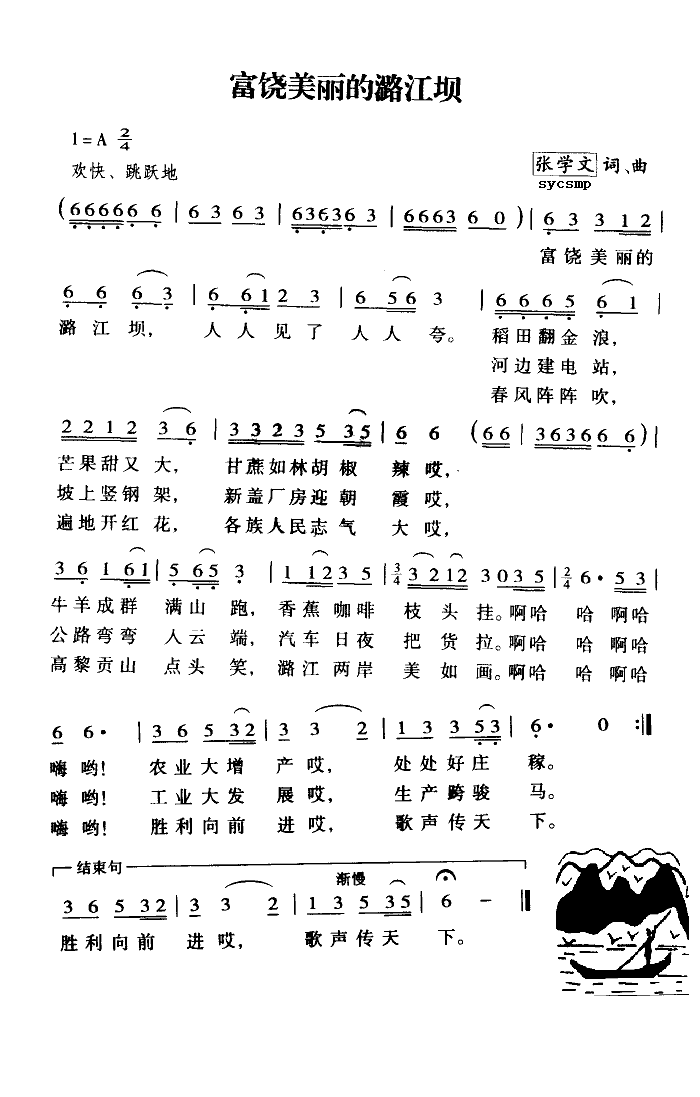 富饶美丽的潞江坝
1=A 2/4
欢快、跳跃地
张学文 词、曲
sycsmp
(66666 6 | 6 3 6 3 | 636363 | 6663 6 0) | 6 3 3 12 |
富饶美丽的
6 6 6 3 | 6 612 3 | 6 56 3 | 6 6 6 5 6 1 |
潞江坝, 人人见了人人夸。 稻田翻金浪,
河边建电站,
春风阵阵吹,
2 2 1 2 3 6 | 3 3 2 3 5 35 | 6 6 (66 | 36366 6) |
芒果甜又大, 甘蔗如林胡椒 辣哎,
坡上竖钢架, 新盖厂房迎朝 霞哎,
遍地开红花, 各族人民志气 大哎,
3 6 1 61 | 5 65 3 | 1 123 5 | 3/4 3 212 303 5 | 2/4 6· 53 |
牛羊成群 满山跑, 香蕉咖啡 枝头挂。啊哈 哈 啊哈
公路弯弯 入云端, 汽车日夜 把货拉。啊哈 哈 啊哈
高黎贡山 点头笑, 潞江两岸 美如画。啊哈 哈 啊哈
6 6· | 3 6 5 32 | 3 3 2 | 1 3 3 53 | 6· 0 :‖
嗨哟! 农业大增 产哎, 处处好庄 稼。
嗨哟! 工业大发 展哎, 生产跨骏 马。
嗨哟! 胜利向前 进哎, 歌声传天 下。
结束句
渐慢
3 6 5 32 | 3 3 2 | 1 3 5 35 | 6 - ‖
胜利向前 进哎, 歌声传天 下。